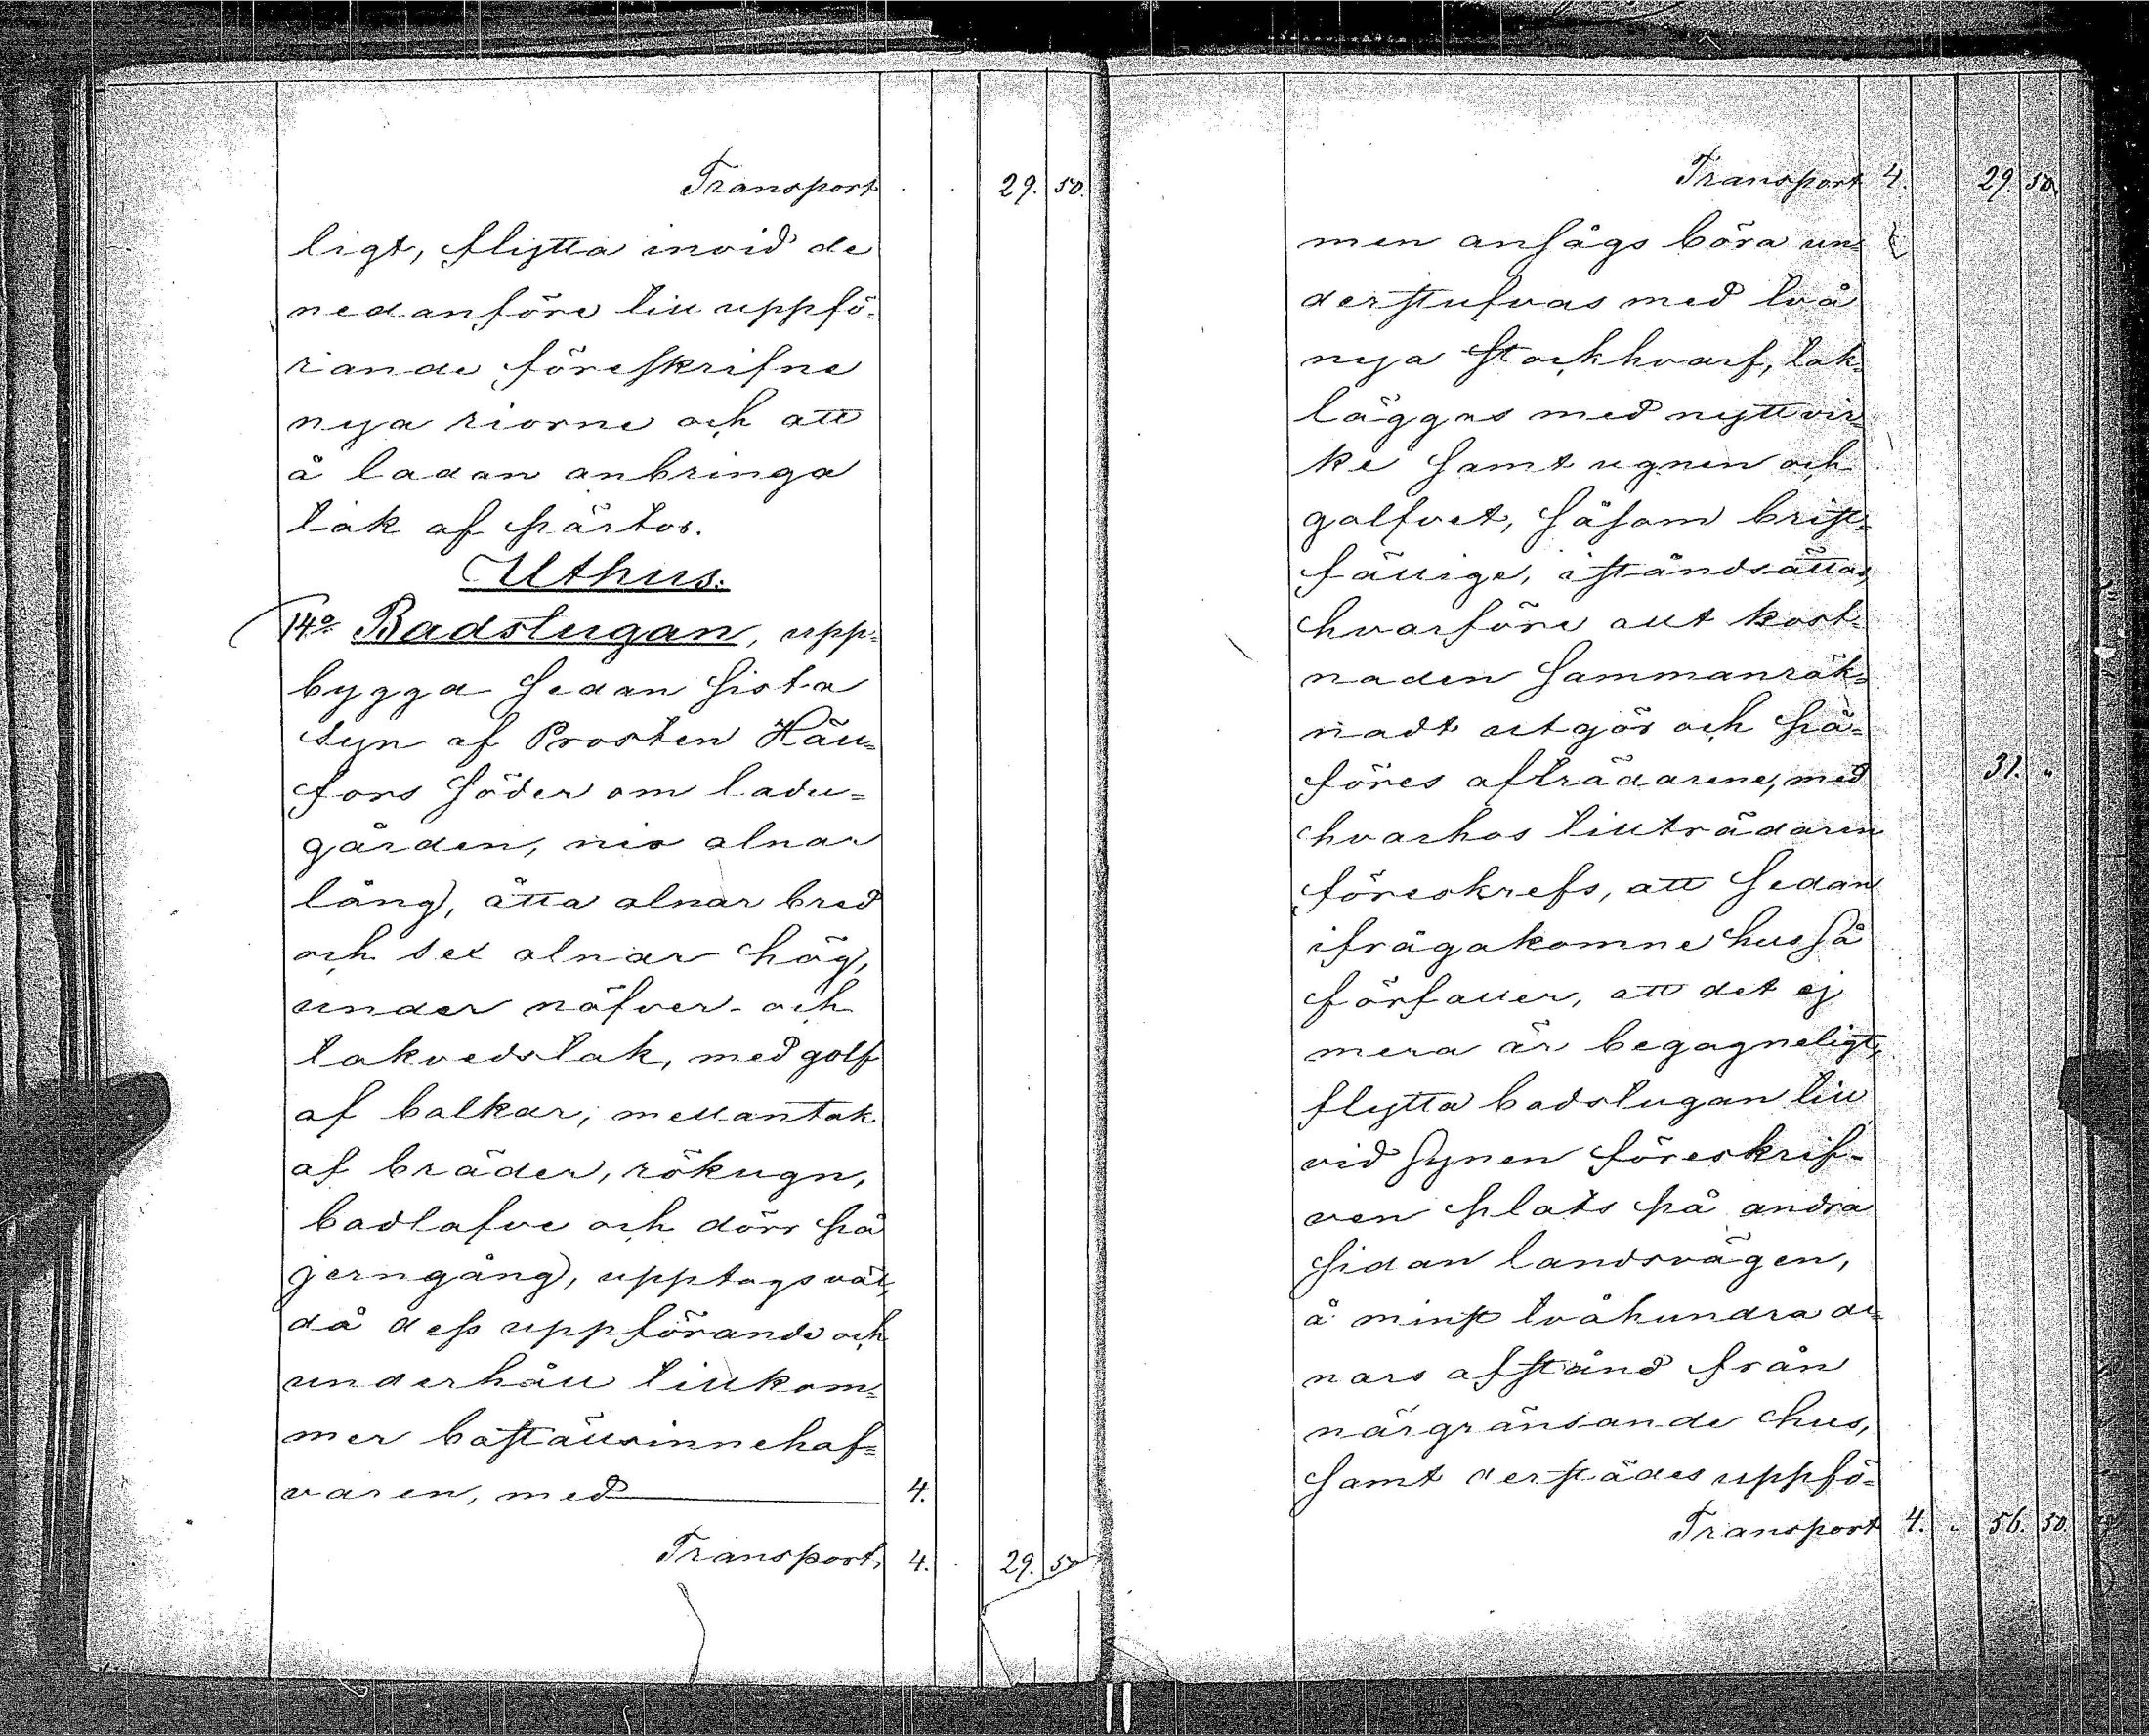 Transport 29. 50.
ligt, flytta invid de
nedanföre till uppfö-
rande föreskrifne
nya riorne och att
å ladan anbringa
tak af pärtor.
Uthus.
14o Badstugan, upp-
bygga sedan sista
syn af Prosten Häll-
fors söder om ladu-
gården, nio alnar
lång, åtta alnar bred
och sex alnar hög,
under näfver- och
takvedstak, med golf
af balkar, mellantak
af bräder, rökugn,
badlafve och dörr på
jerngång, upptogs väl,
då dess uppförande och
underhåll tillkom-
mer boställsinnehaf-
varen, med 4.
Transport, 4. 29. 50
Transport 4. 29. 50.
men ansågs böra un-
derstufvas med två
nya stockhvarf, tak-
läggas med nytt vir-
ke samt ugnen och
golfvet, såsom brist-
fällige, iståndsättas,
hvarföre allt kost-
naden sammanräk-
nadt utgör och på-
föres afträdarene, med 31. "
hvarhos tillträdaren
föreskrefs, att sedan
ifrågakomne hus så
förfaller, att det ej
mera är begagneligt,
flytta badstugan till
vid synen föreskrif-
ven plats på andra
sidan landsvägen,
å minst tvåhundra al-
nars afstånd från
närgränsande hus,
samt derstädes uppfö-
Transport 4. " 56. 50